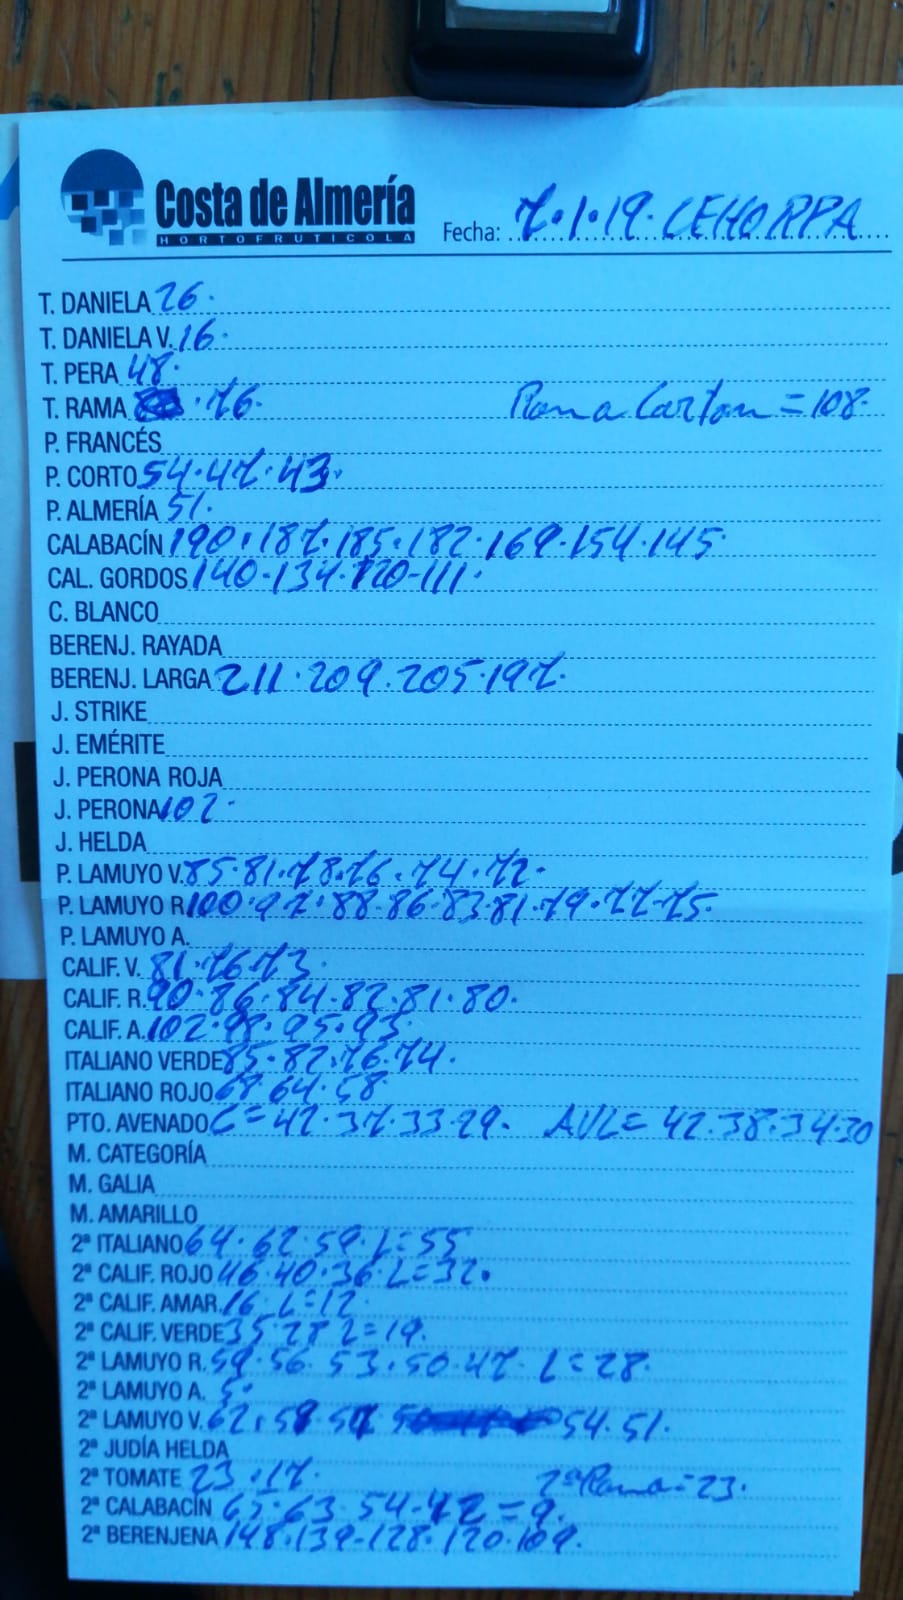 Costa de Almería
HORTOFRUTICOLA
Fecha: 7.1.19. CEHORPA
T. DANIELA 26.
T. DANIELA V. 16.
T. PERA 48.
T. RAMA 76. Rama Carton = 108.
P. FRANCÉS
P. CORTO 54.47.43.
P. ALMERÍA 51.
CALABACÍN 190.187.185.182.169.154.145.
CAL. GORDOS 140-134.120-111.
C. BLANCO
BERENJ. RAYADA
BERENJ. LARGA 211.209.205.197.
J. STRIKE
J. EMÉRITE
J. PERONA ROJA
J. PERONA 102.
J. HELDA
P. LAMUYO V. 85.81.78.76.74.72.
P. LAMUYO R. 100.97.88.86.83.81.79.77.75.
P. LAMUYO A.
CALIF. V. 81.76.73.
CALIF. R. 90.86.84.82.81.80.
CALIF. A. 102.98.95.93.
ITALIANO VERDE 85.82.76.74.
ITALIANO ROJO 68.64.58
PTO. AVENADO C=42.37.33.29. AVL=42.38.34.30
M. CATEGORÍA
M. GALIA
M. AMARILLO
2ª ITALIANO 64.62.59.L=55
2ª CALIF. ROJO 46.40.36.L=32.
2ª CALIF. AMAR. 16.L=12.
2ª CALIF. VERDE 35.28 L=19.
2ª LAMUYO R. 59.56.53.50.47. L=28.
2ª LAMUYO A. 5.
2ª LAMUYO V. 62.58.57 54.51.
2ª JUDÍA HELDA
2ª TOMATE 23.17. 2ª Rama=23.
2ª CALABACÍN 65.63.54. =9.
2ª BERENJENA 148.139-128.120.109.